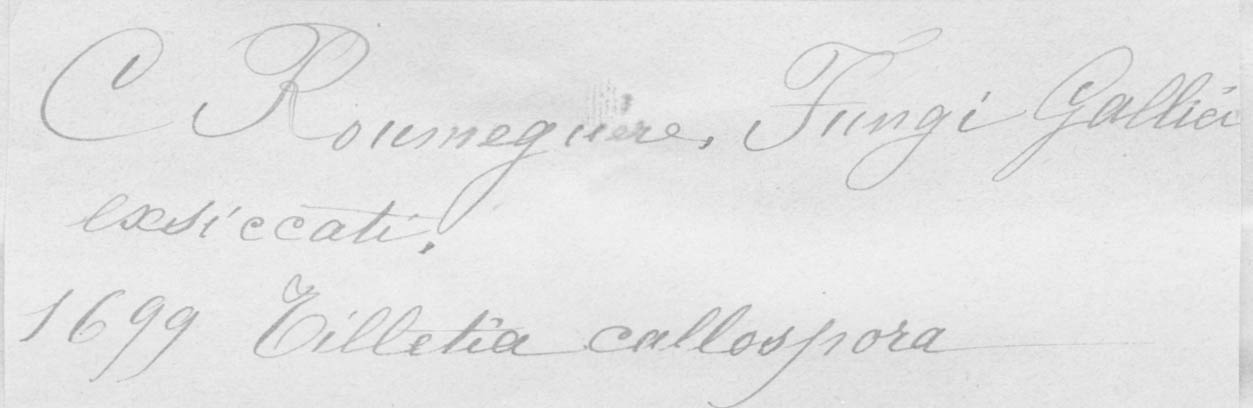 C Roumeguère, Fungi Gallici
exsiccati.
1699 Tilletia callospora